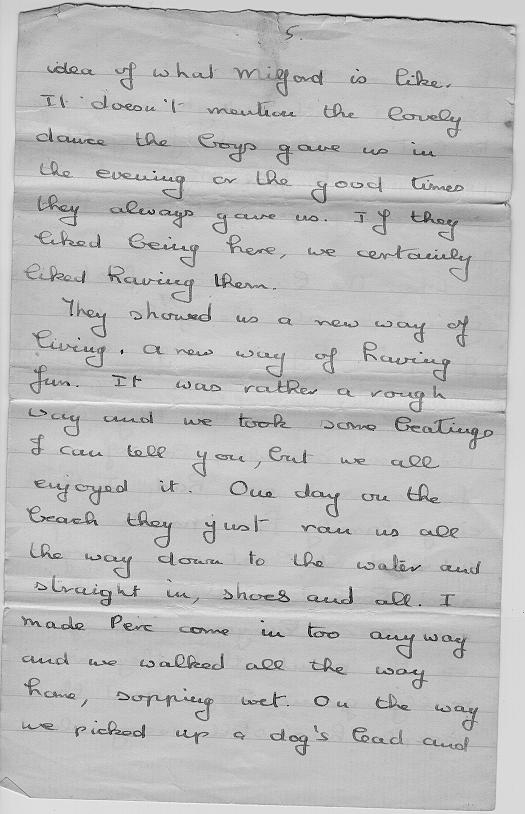 5.
idea of what Milford is like.
It doesn't mention the lovely
dance the boys gave us in
the evening or the good times
they always gave us. If they
liked being here, we certainly
liked having them.
They showed us a new way of
living, a new way of having
fun. It was rather a rough
way and we took some beatings
I can tell you, but we all
enjoyed it. One day on the
beach they just ran us all
the way down to the water and
straight in, shoes and all. I
made Perc come in too anyway
and we walked all the way
home, sopping wet. On the way
we picked up a dog's lead and